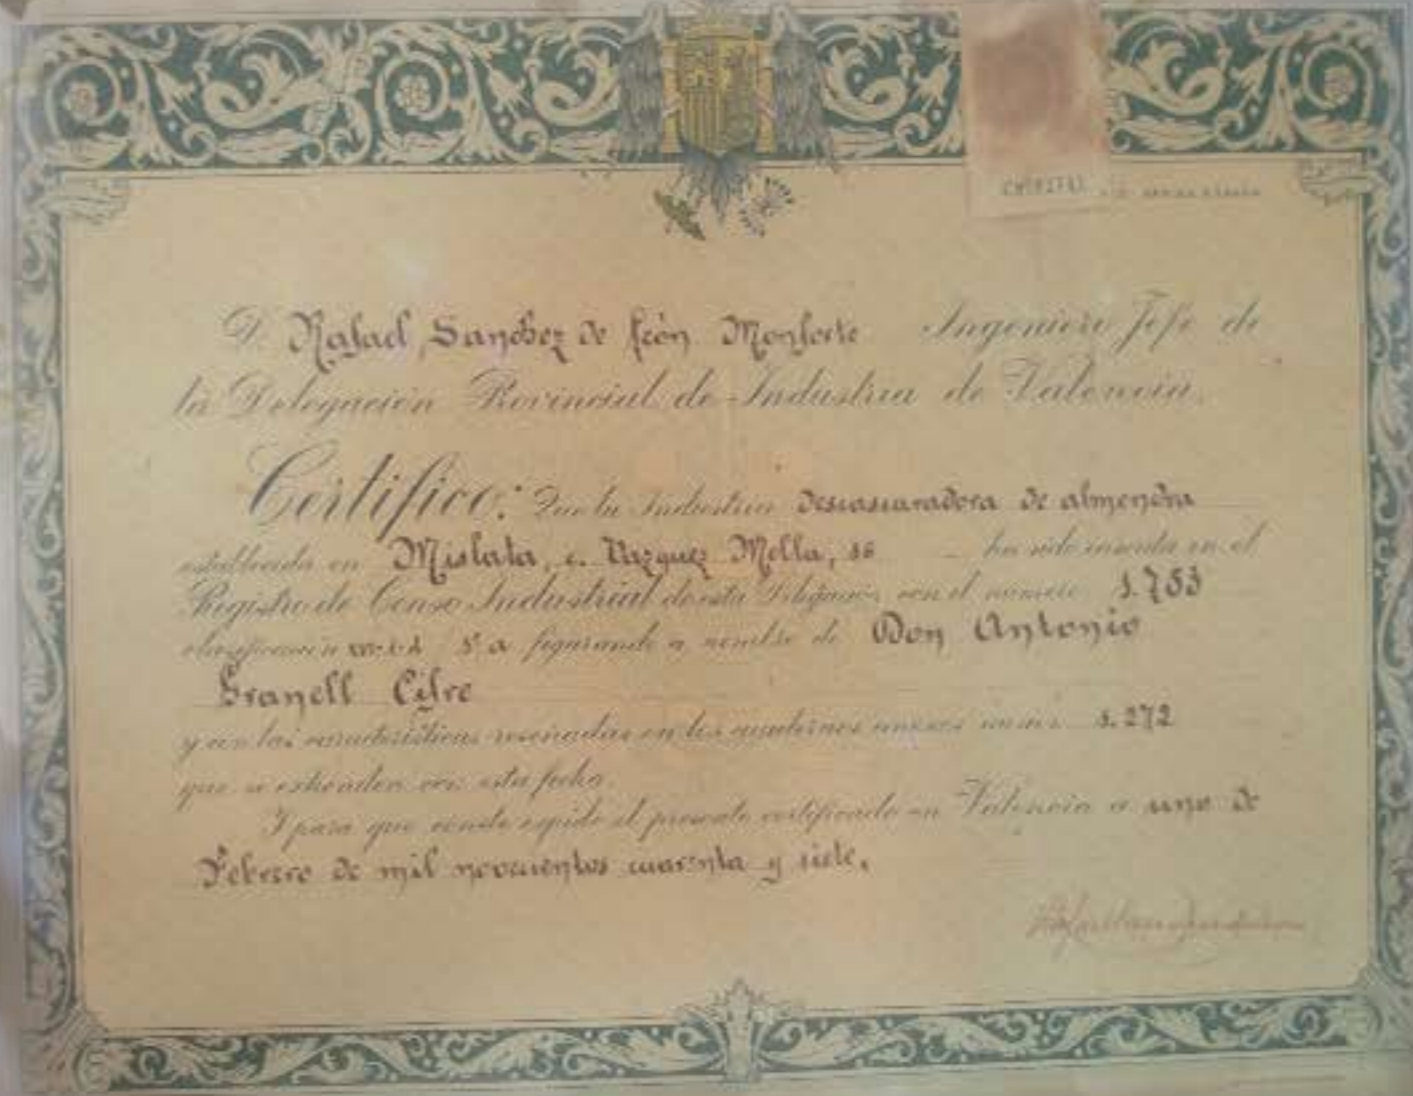 D. Rafael Sanchez de León Monforte Ingeniero Jefe de
la Delegación Provincial de Industria de Valencia.
Certifico: Que la Industria descascaradora de almendra
establecida en Mislata, c. Vazquez Mella, 16 ha sido inscrita en el
Registro de Censo Industrial de esta Delegación con el número 1.753
clasificación 5ª a figurando a nombre de Don Antonio
Granell Cifre
y con las características reseñadas en los cuadernos anexos núm. 1.272
que se extienden con esta fecha.
Y para que conste expido el presente certificado en Valencia a uno de
Febrero de mil novecientos cuarenta y siete.